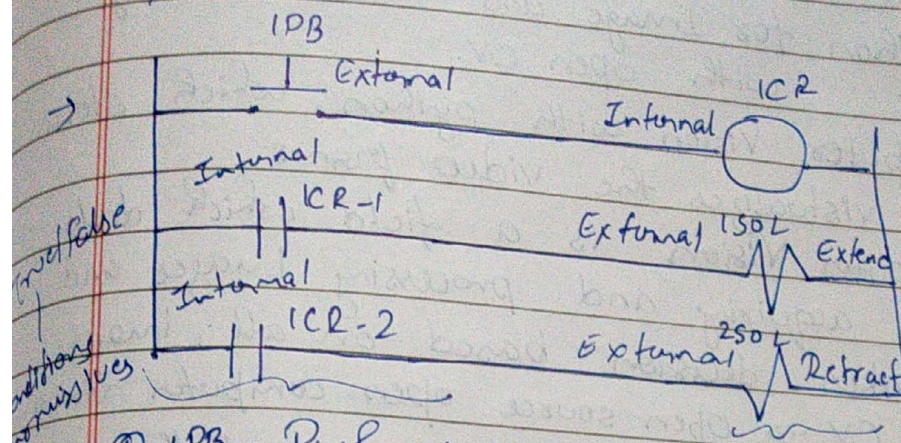 1PB
External
1CR
Internal
Internal
1CR-1
External 1SOL
Extend
True/false
Internal
1CR-2
External 2SOL
Retract
1PB